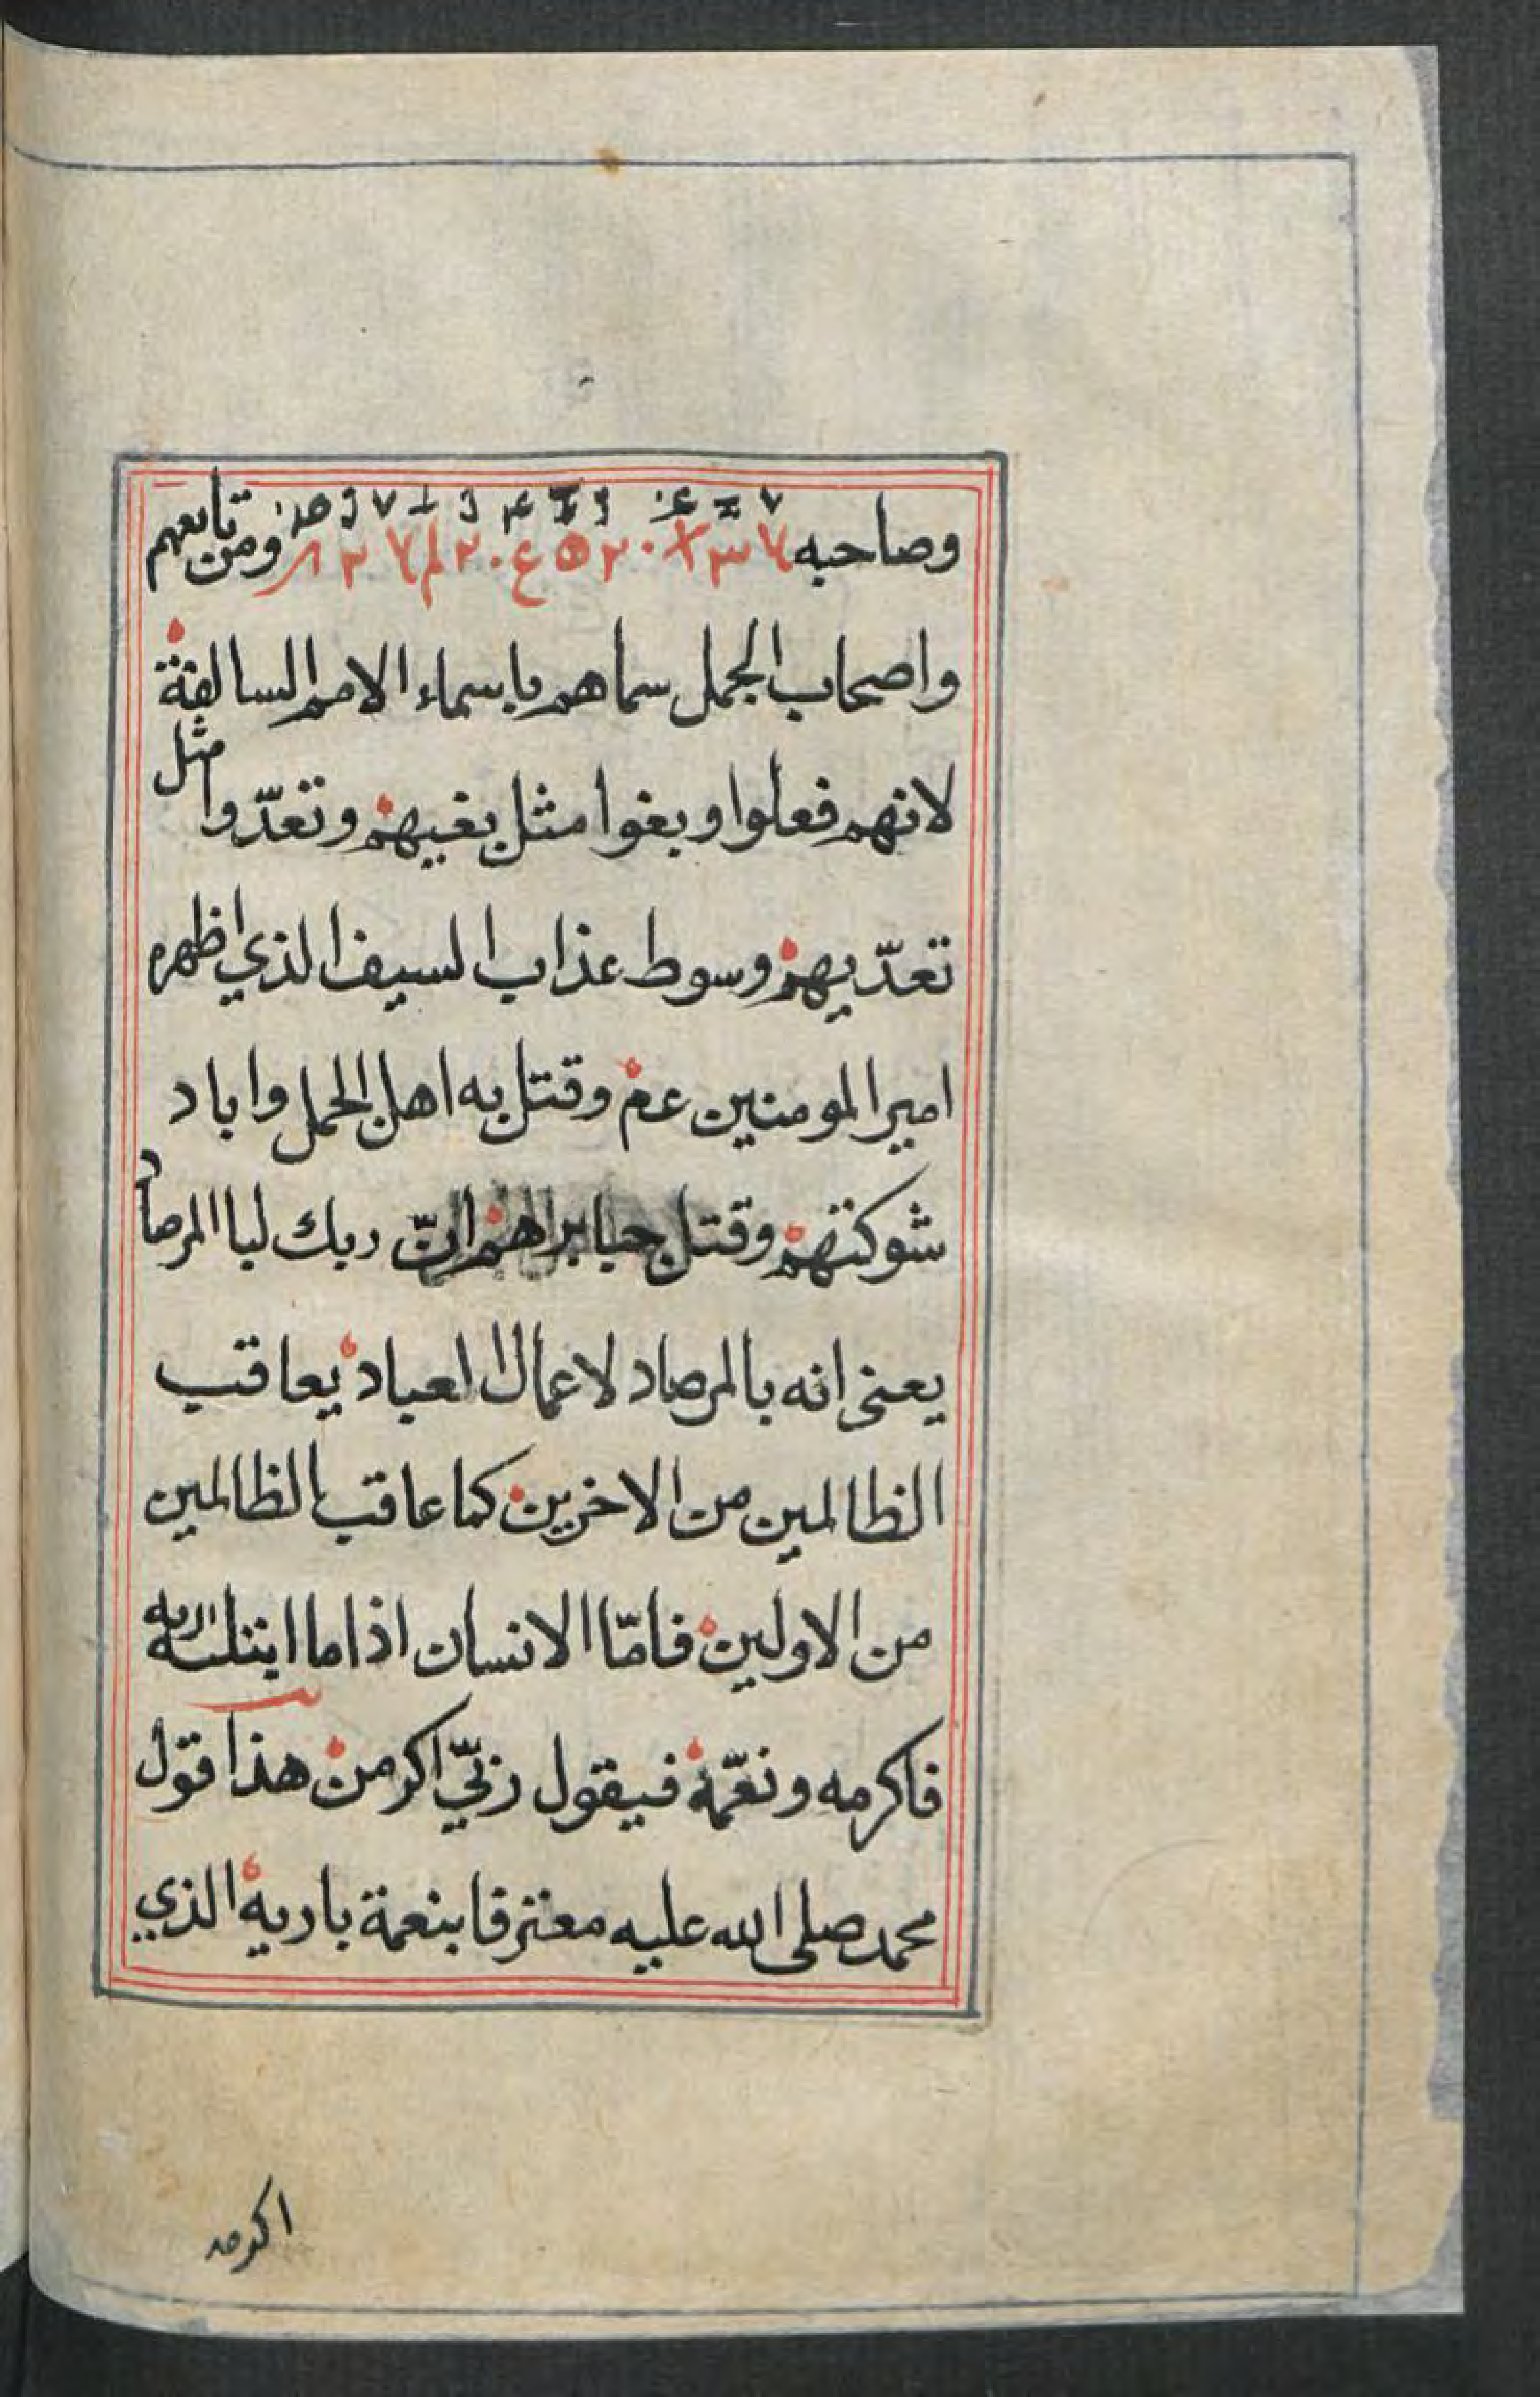 وصاحبه ومن تابعهم
واصحاب الجمل سماهم باسماء الامم السالفة
لانهم فعلوا وبغوا مثل بغيهم وتعدّوا مثل
تعدّيهم وسوط عذاب السيف الذي اظهره
امير المومنين عم وقتل به اهل الجمل واباد
شوكتهم وقتل جبابراهم انّ ربك لبا المرصاد
يعني انه بالمرصاد لاعمال العباد يعاقب
الظالمين من الاخرين كما عاقب الظالمين
من الاولين فامّا الانسان اذا ما ابتلئه ربه
فاكرمه ونعّمه فيقول ربّي اكرمن هذا قول
محمد صلى الله عليه معترفا بنعمة باريه الذي
اكرمه